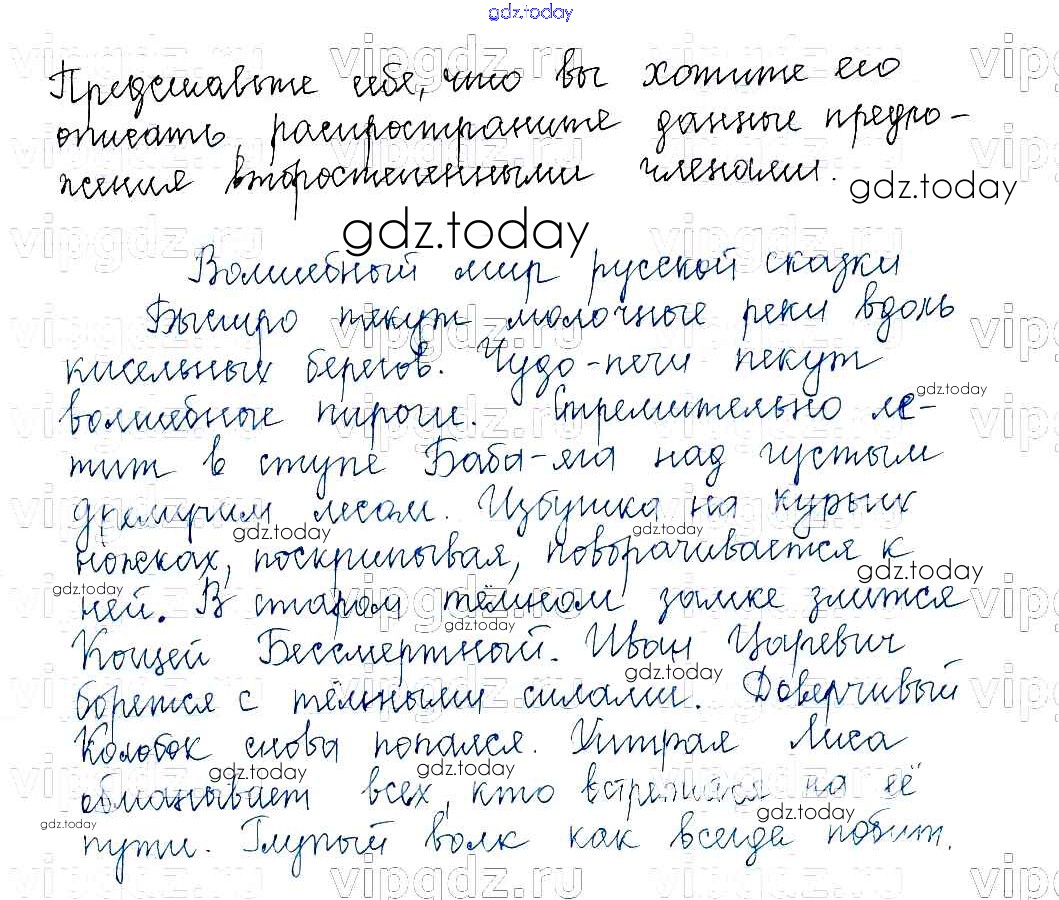 gdz.today
Представьте себе, что вы хотите его
описать, распространите данные предло-
жения второстепенными членами.
gdz.today
gdz.today
Волшебный мир русской сказки
Быстро текут молочные реки вдоль
кисельных берегов. Чудо-печи пекут
gdz.today
волшебные пироги. Стремительно ле-
тит в ступе Баба-яга над густым
дремучим лесом. Избушка на курьих
gdz.today gdz.today
ножках, поскрипывая, поворачивается к
gdz.today gdz.today
ней. В старом тёмном замке злится
gdz.today
Кощей Бессмертный. Иван Царевич
gdz.today
борется с тёмными силами. Доверчивый
Колобок снова попался. Хитрая Лиса
gdz.today gdz.today
обманывает всех, кто встретится на её
gdz.today gdz.today
пути. Глупый волк как всегда побит.
vipgdz.ru